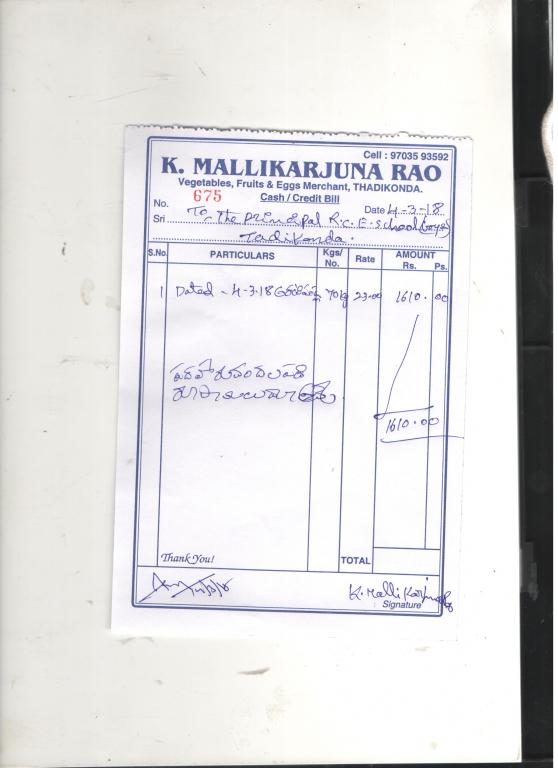 Cell : 97035 93592
K. MALLIKARJUNA RAO
Vegetables, Fruits & Eggs Merchant, THADIKONDA.
Cash / Credit Bill
No. 675
Date 4-3-18
Sri To The Principal R.C.E. School (Boys)
Tadikonda.
S.No. PARTICULARS Kgs/ No. Rate AMOUNT Rs. Ps.
1 Dated - 4-3-18 70kg 23.00 1610.00
1610.00
Thank You!
TOTAL
K. Mallikarjuna
Signature